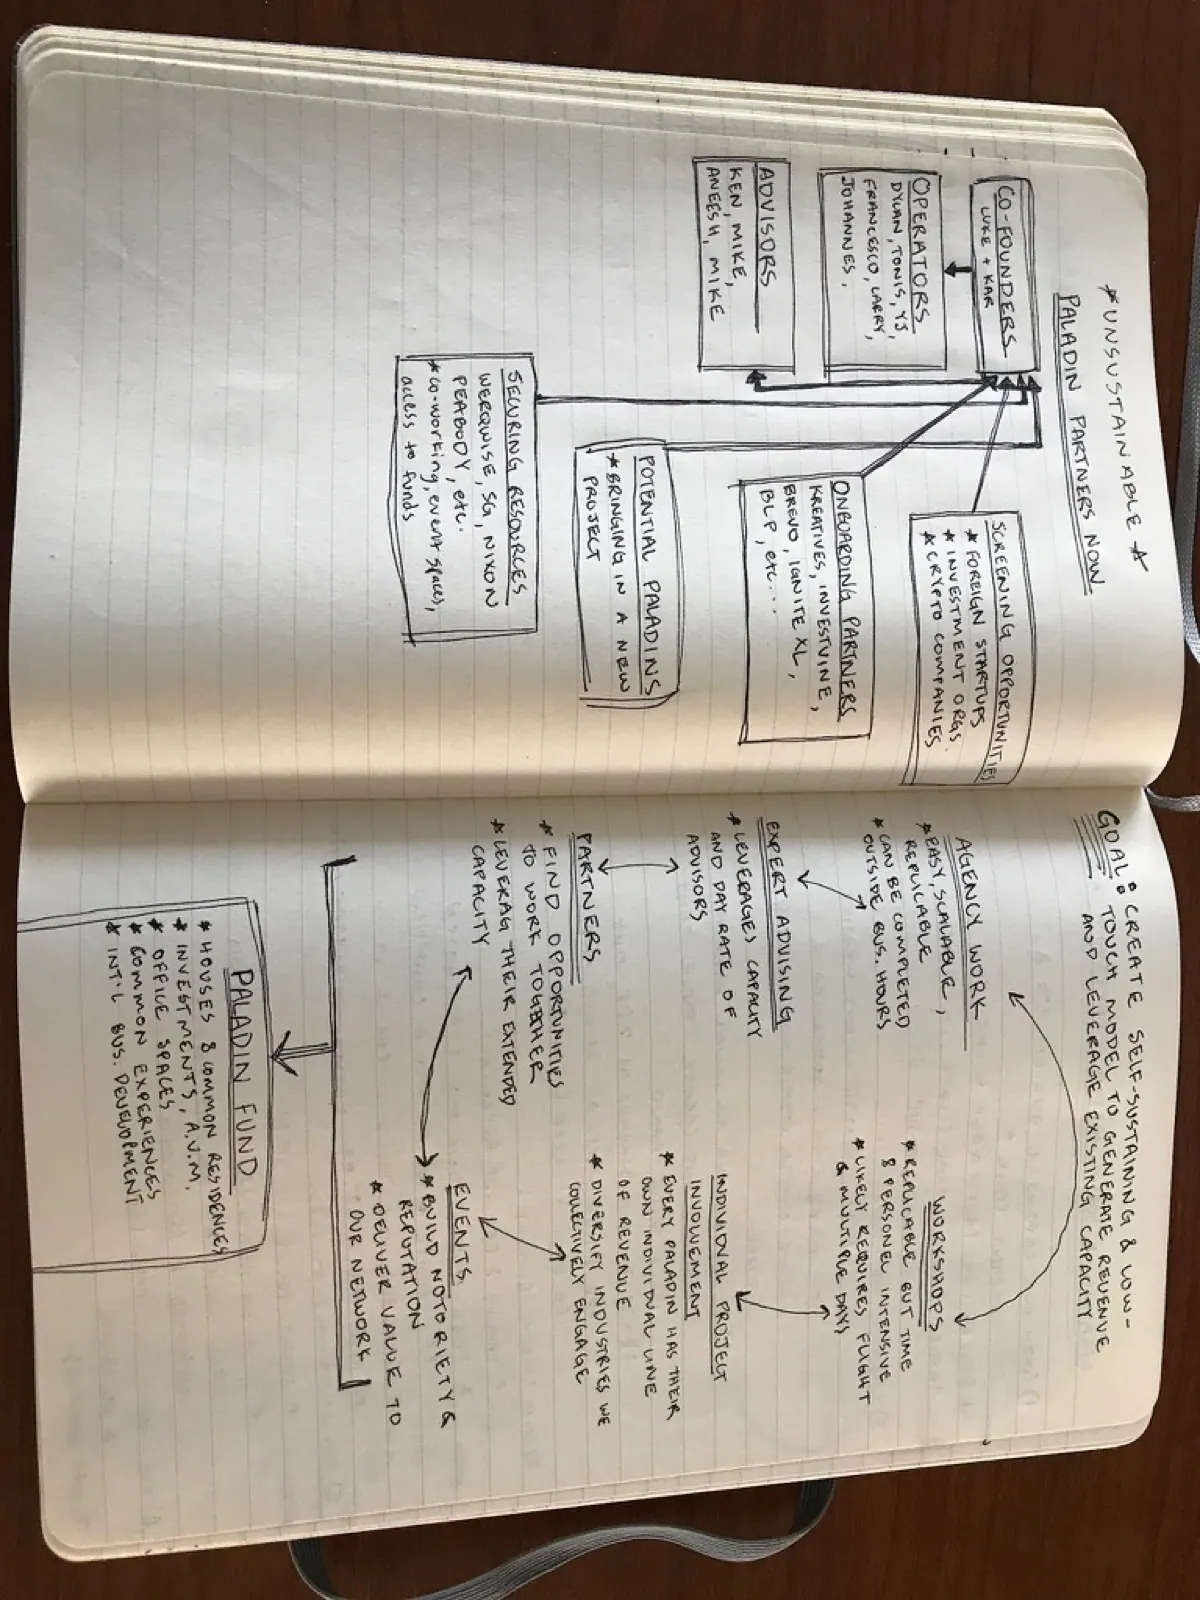 * UNSUSTAINABLE *
PALADIN PARTNERS NOW
CO-FOUNDERS
LUKE + KAR
OPERATORS
DYLAN, TONIS, YJ,
FRANCESCO, LARRY,
JOHANNES,
ADVISORS
KEN, MIKE,
ANEESH, MIKE
SCREENING OPPORTUNITIES
* FOREIGN STARTUPS
* INVESTMENT ORGS.
* CRYPTO COMPANIES
ONBOARDING PARTNERS
KREATIVES, INVESTVINE,
BREVO, IGNITE XL,
BLP, etc....
POTENTIAL PALADINS
* BRINGING IN A NEW
PROJECT
SECURING RESOURCES
WERQWISE, SG, NIXON
PEABODY, etc.
* CO-WORKING, event spaces,
access to funds
GOAL: CREATE SELF-SUSTAINING & LOW-
TOUCH MODEL TO GENERATE REVENUE
AND LEVERAGE EXISTING CAPACITY
AGENCY WORK
* EASY, SCALABLE,
REPLICABLE
* CAN BE COMPLETED
OUTSIDE BUS. HOURS
EXPERT ADVISING
* LEVERAGES CAPACITY
AND DAY RATE OF
ADVISORS
PARTNERS
* FIND OPPORTUNITIES
TO WORK TOGETHER
* LEVERAG THEIR EXTENDED
CAPACITY
WORKSHOPS
* REPLICABLE BUT TIME
& PERSONEL INTENSIVE
* LIKELY REQUIRES FLIGHT
& MULTIPLE DAYS
INDIVIDUAL PROJECT
INVOLVEMENT
* EVERY PALADIN HAS THEIR
OWN INDIVIDUAL LINE
OF REVENUE
* DIVERSIFY INDUSTRIES WE
COLLECTIVELY ENGAGE
EVENTS
* BUILD NOTORIETY &
REPUTATION
* DELIVER VALUE TO
OUR NETWORK
PALADIN FUND
* HOUSES & COMMON RESIDENCES
* INVESTMENTS, A.U.M.
* OFFICE SPACES
* COMMON EXPERIENCES
* INT'L BUS. DEVELOPMENT